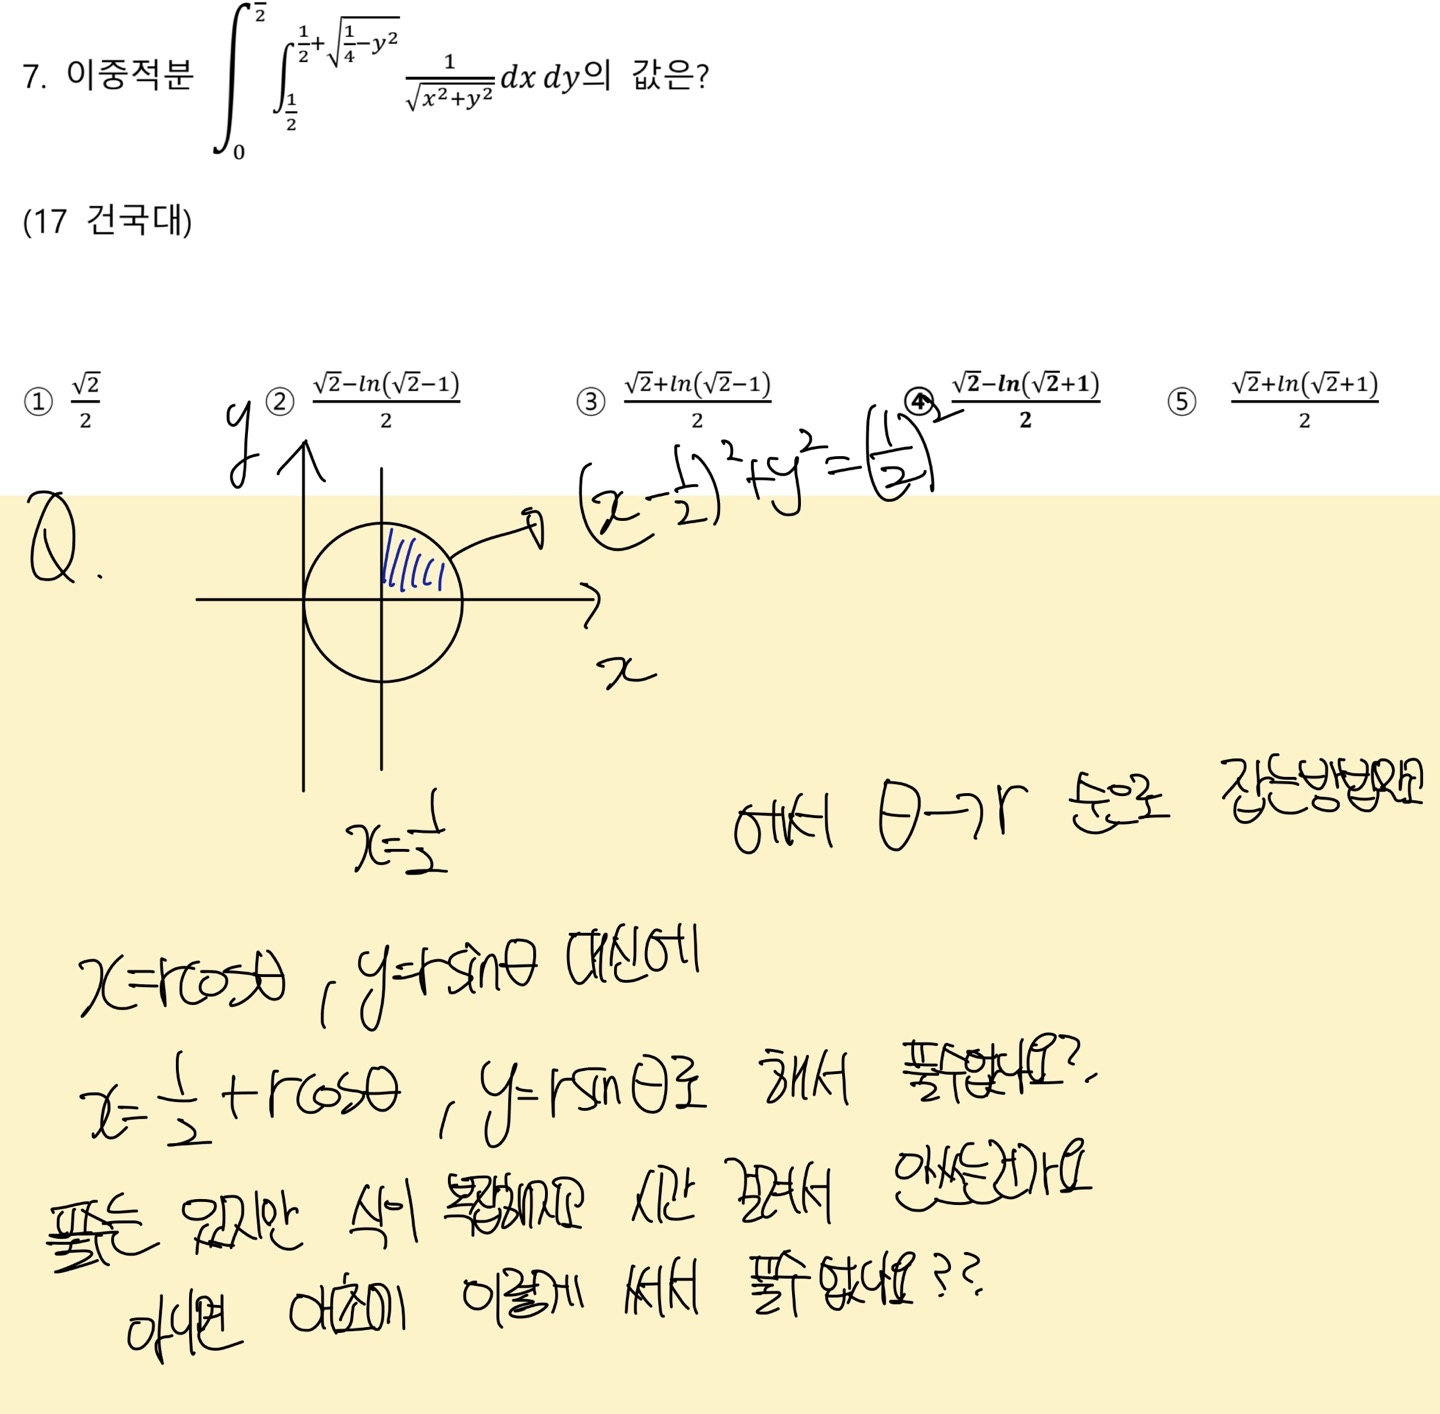 7. 이중적분 ∫₀^{\overline{2}} ∫_{1/2}^{1/2+√(1/4−y²)} 1/√(x²+y²) dx dy의 값은?
(17 건국대)
① √2/2 ② (√2−ln(√2−1))/2 ③ (√2+ln(√2−1))/2 ④ (√2−ln(√2+1))/2 ⑤ (√2+ln(√2+1))/2
y
(x−1/2)²+y²=(1/2)²
Q.
x
x=1/2
에서 θ→r 순으로 잡는방법말고
x=rcosθ, y=rsinθ 대신에
x=1/2+rcosθ, y=rsinθ로 해서 풀수없나요?
풀수는 있지만 식이 복잡해지고 시간 걸려서 안쓰는건가요
아니면 애초에 이렇게 써서 풀수없나요??